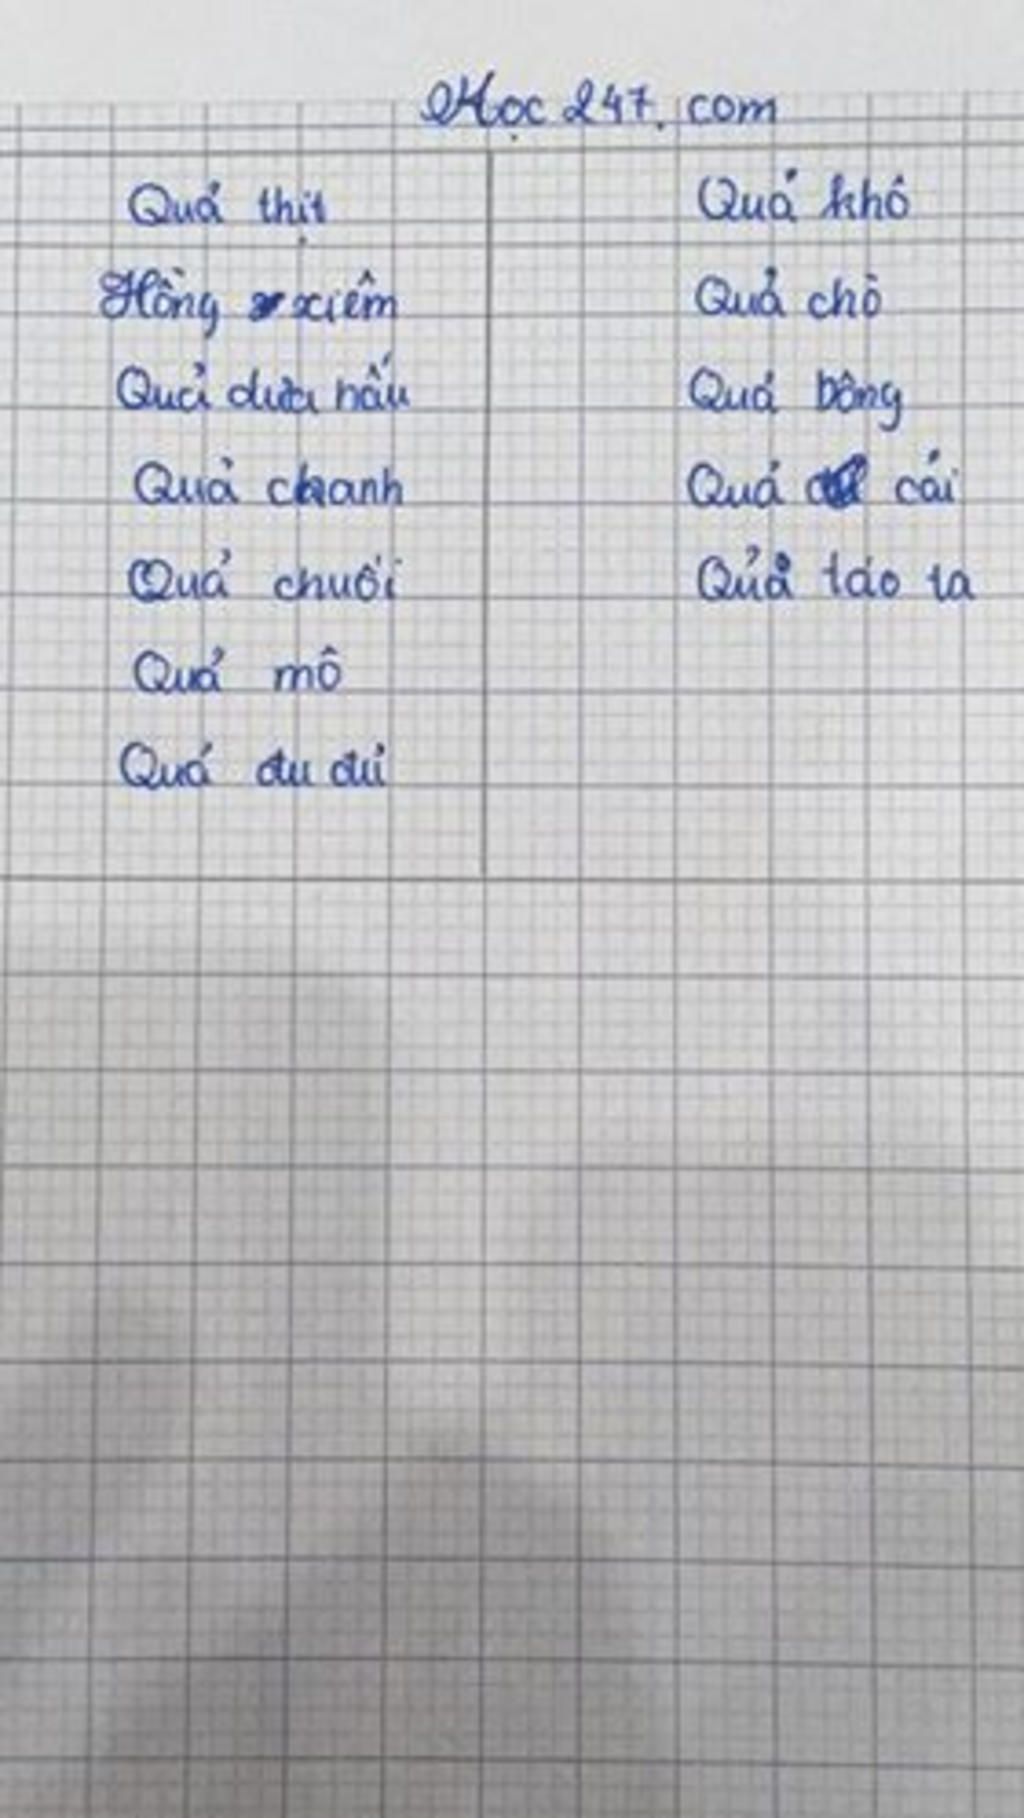 Học 247.com
Quả thịt
Hồng xiêm
Quả dưa hấu
Quả chanh
Quả chuối
Quả mô
Quả đu đủ
Quả khô
Quả chò
Quả bông
Quả cải
Quả táo ta